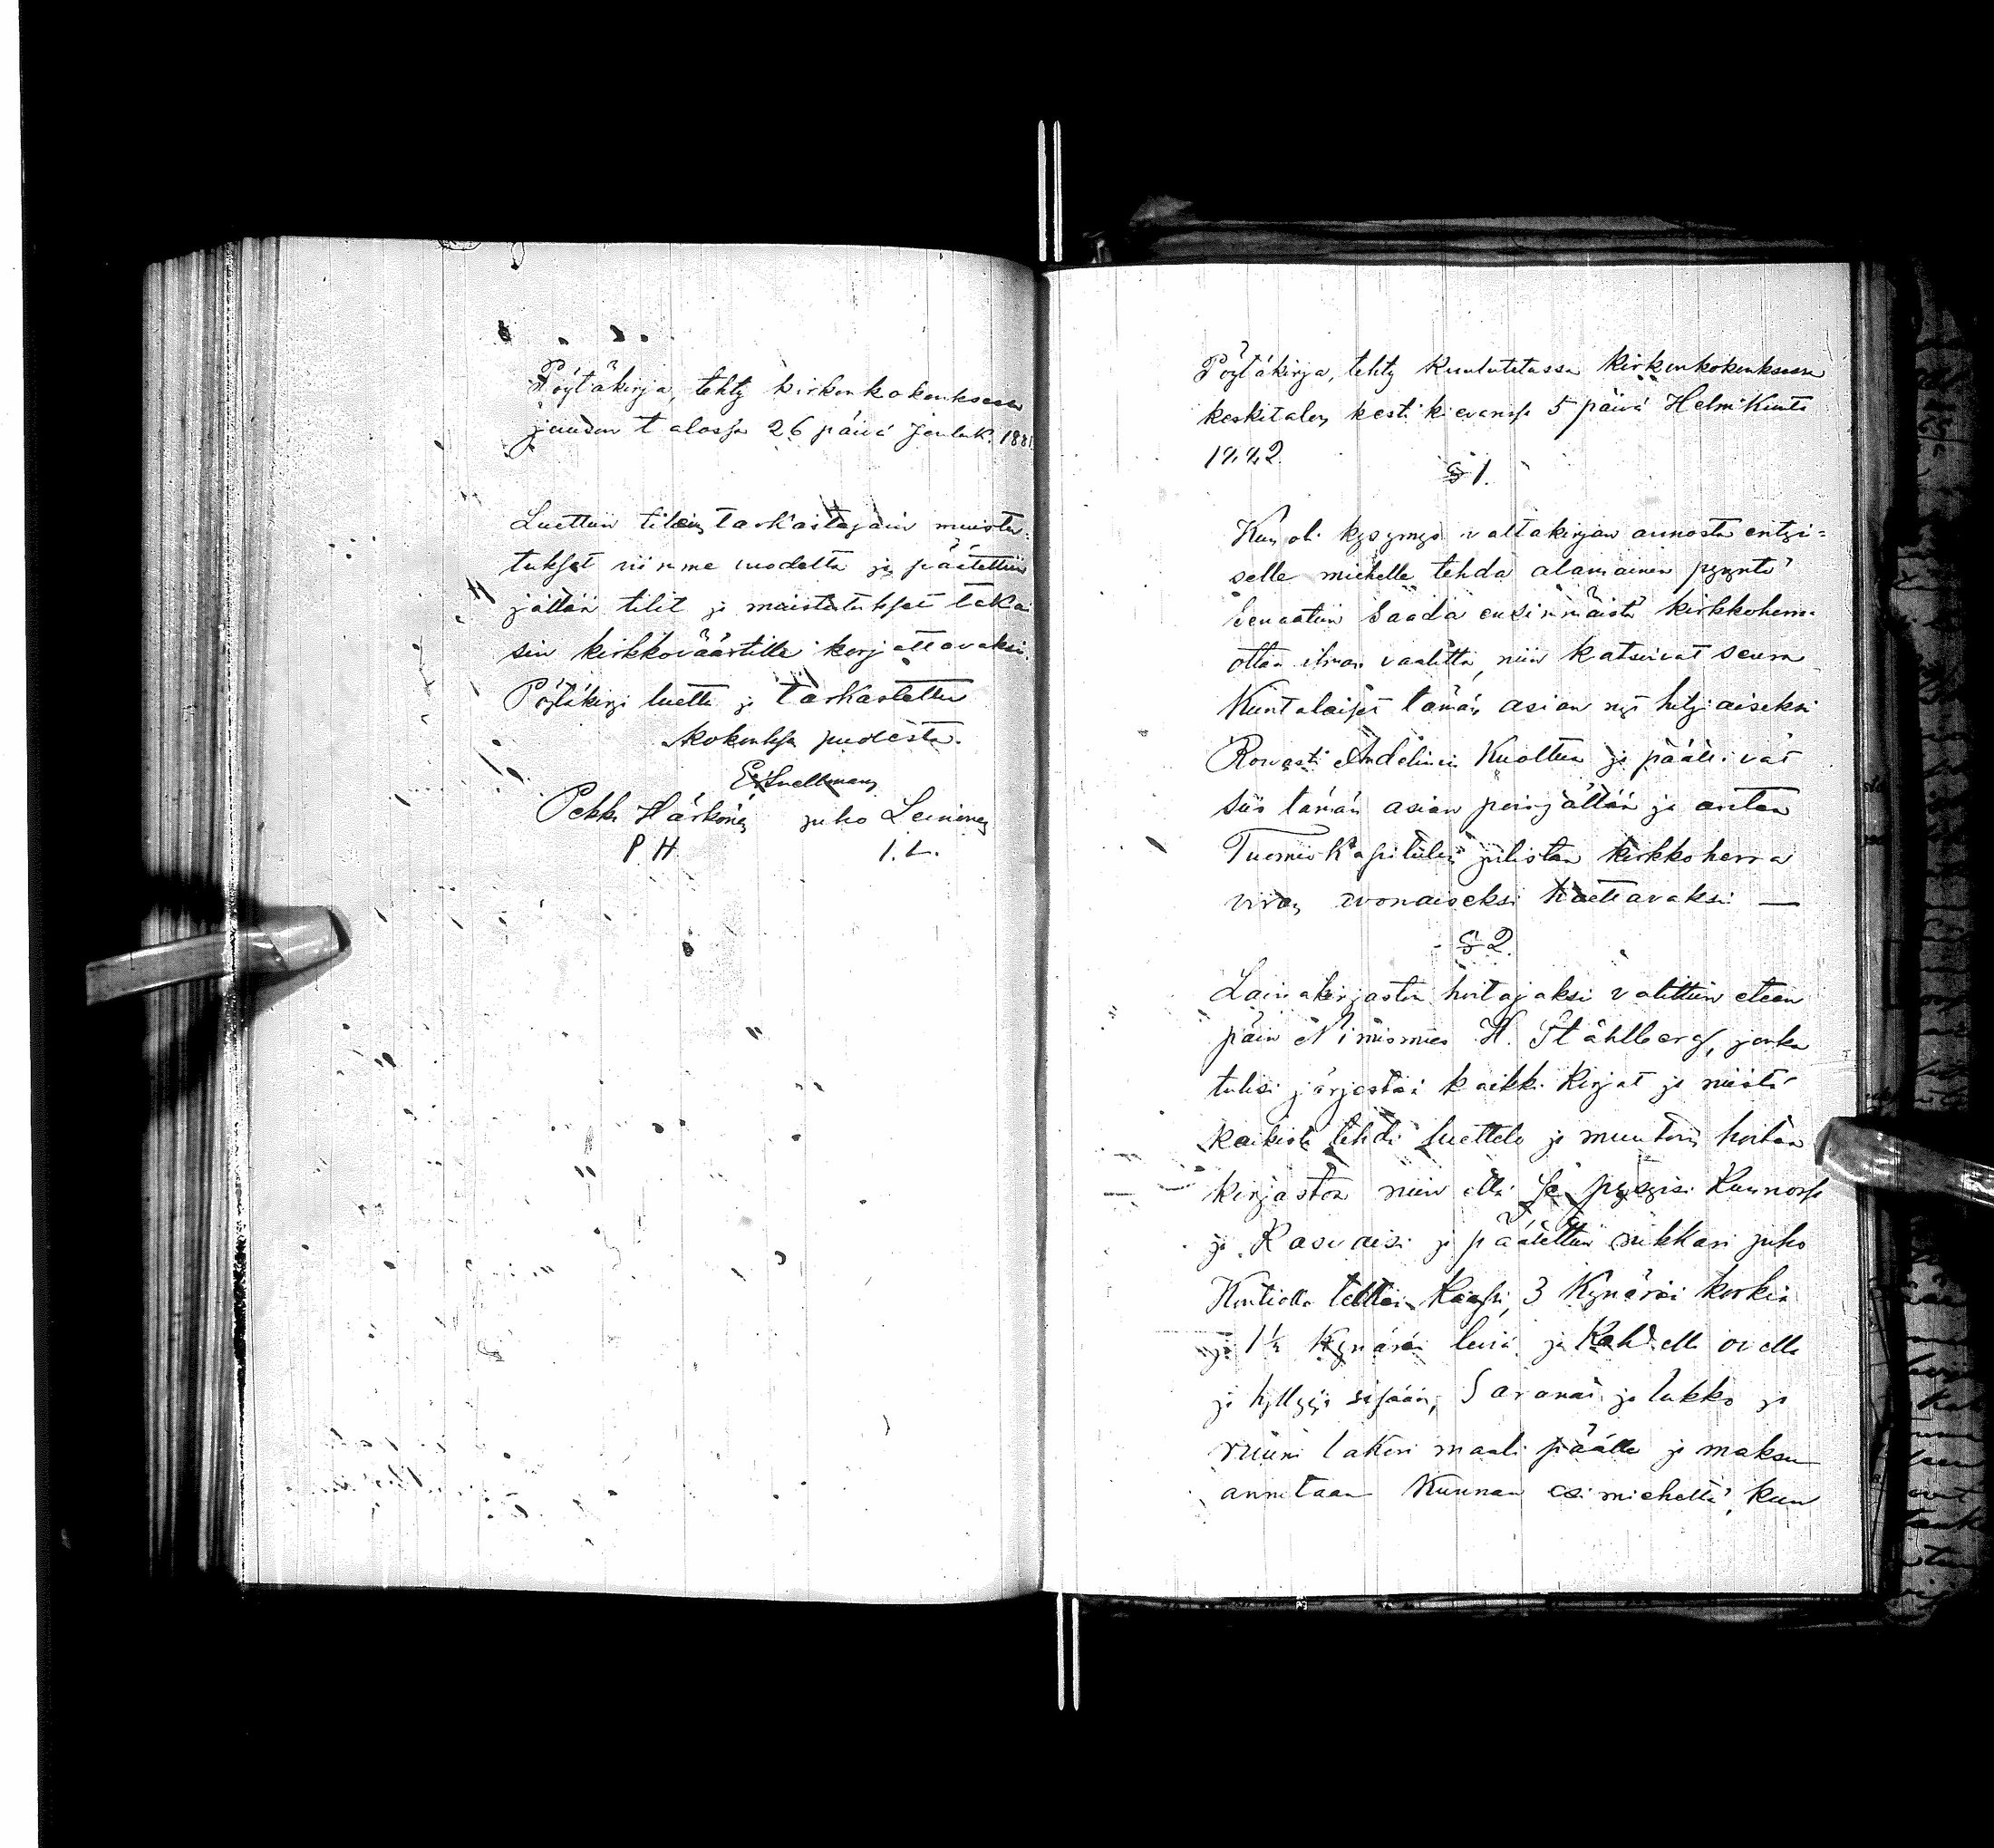 Pöytäkirja, tehty kirkonkokouksessa
juudin talossa 26 päivä Jouluk. 1881
Luettiin tilein tarkastajain muistu-
tukset viimme vuodelta ja päätettiin
jättää tilit ja muistutukset taka
sin kirkkoväärtille korjattavaksi.
Pöytäkirja luettu ja tarkastettu
kokouksen puolesta.
E. Snellman
Pekka Härkönen juho Leininen
P. H. I. L.
Pöytäkirja, tehty kuulutetussa kirkonkokouksessa
keskitalon kestikievarissa 5 päivä Helmikuuta
1882.
§ 1.
Kun oli kysymys valtakirjan annosta erityi-
selle miehelle tehdä alamainen pyyntö
Senaatiin saada ensimmäistä kirkkoherra
ottaa ilman vaalitta, niin katsoivat seura
Kuntalaiset tämän asian nyt hiljaiseksi
Rovasti Andelinin kuoltua ja päätti vät
siis tämän asian peinjättää ja antaa
Tuomiokapitulin julistaa kirkkoherra
viran avonaiseksi haettavaksi —
§ 2.
Lainakirjaston hoitajaksi valittiin eteen
päin Nimismies H. Ståhlberg, jonka
tulisi järjestää kaikki kirjat ja niistä
kaikista tehdä luettelo ja muutoin hoitaa
kirjastoa niin että se pysyisi kunnossa
ja kasvaisi ja päätettiin nikkari juho
Kontiolla tettää kaappi, 3 kynärää korkia
ja 1½ kynärää leviä ja kahdella ovella
ja hyllyjä sisään, saranat ja lukko ja
ruuni lakeri maali päälle ja maksu
annetaan kunnan esimieheltä, kun